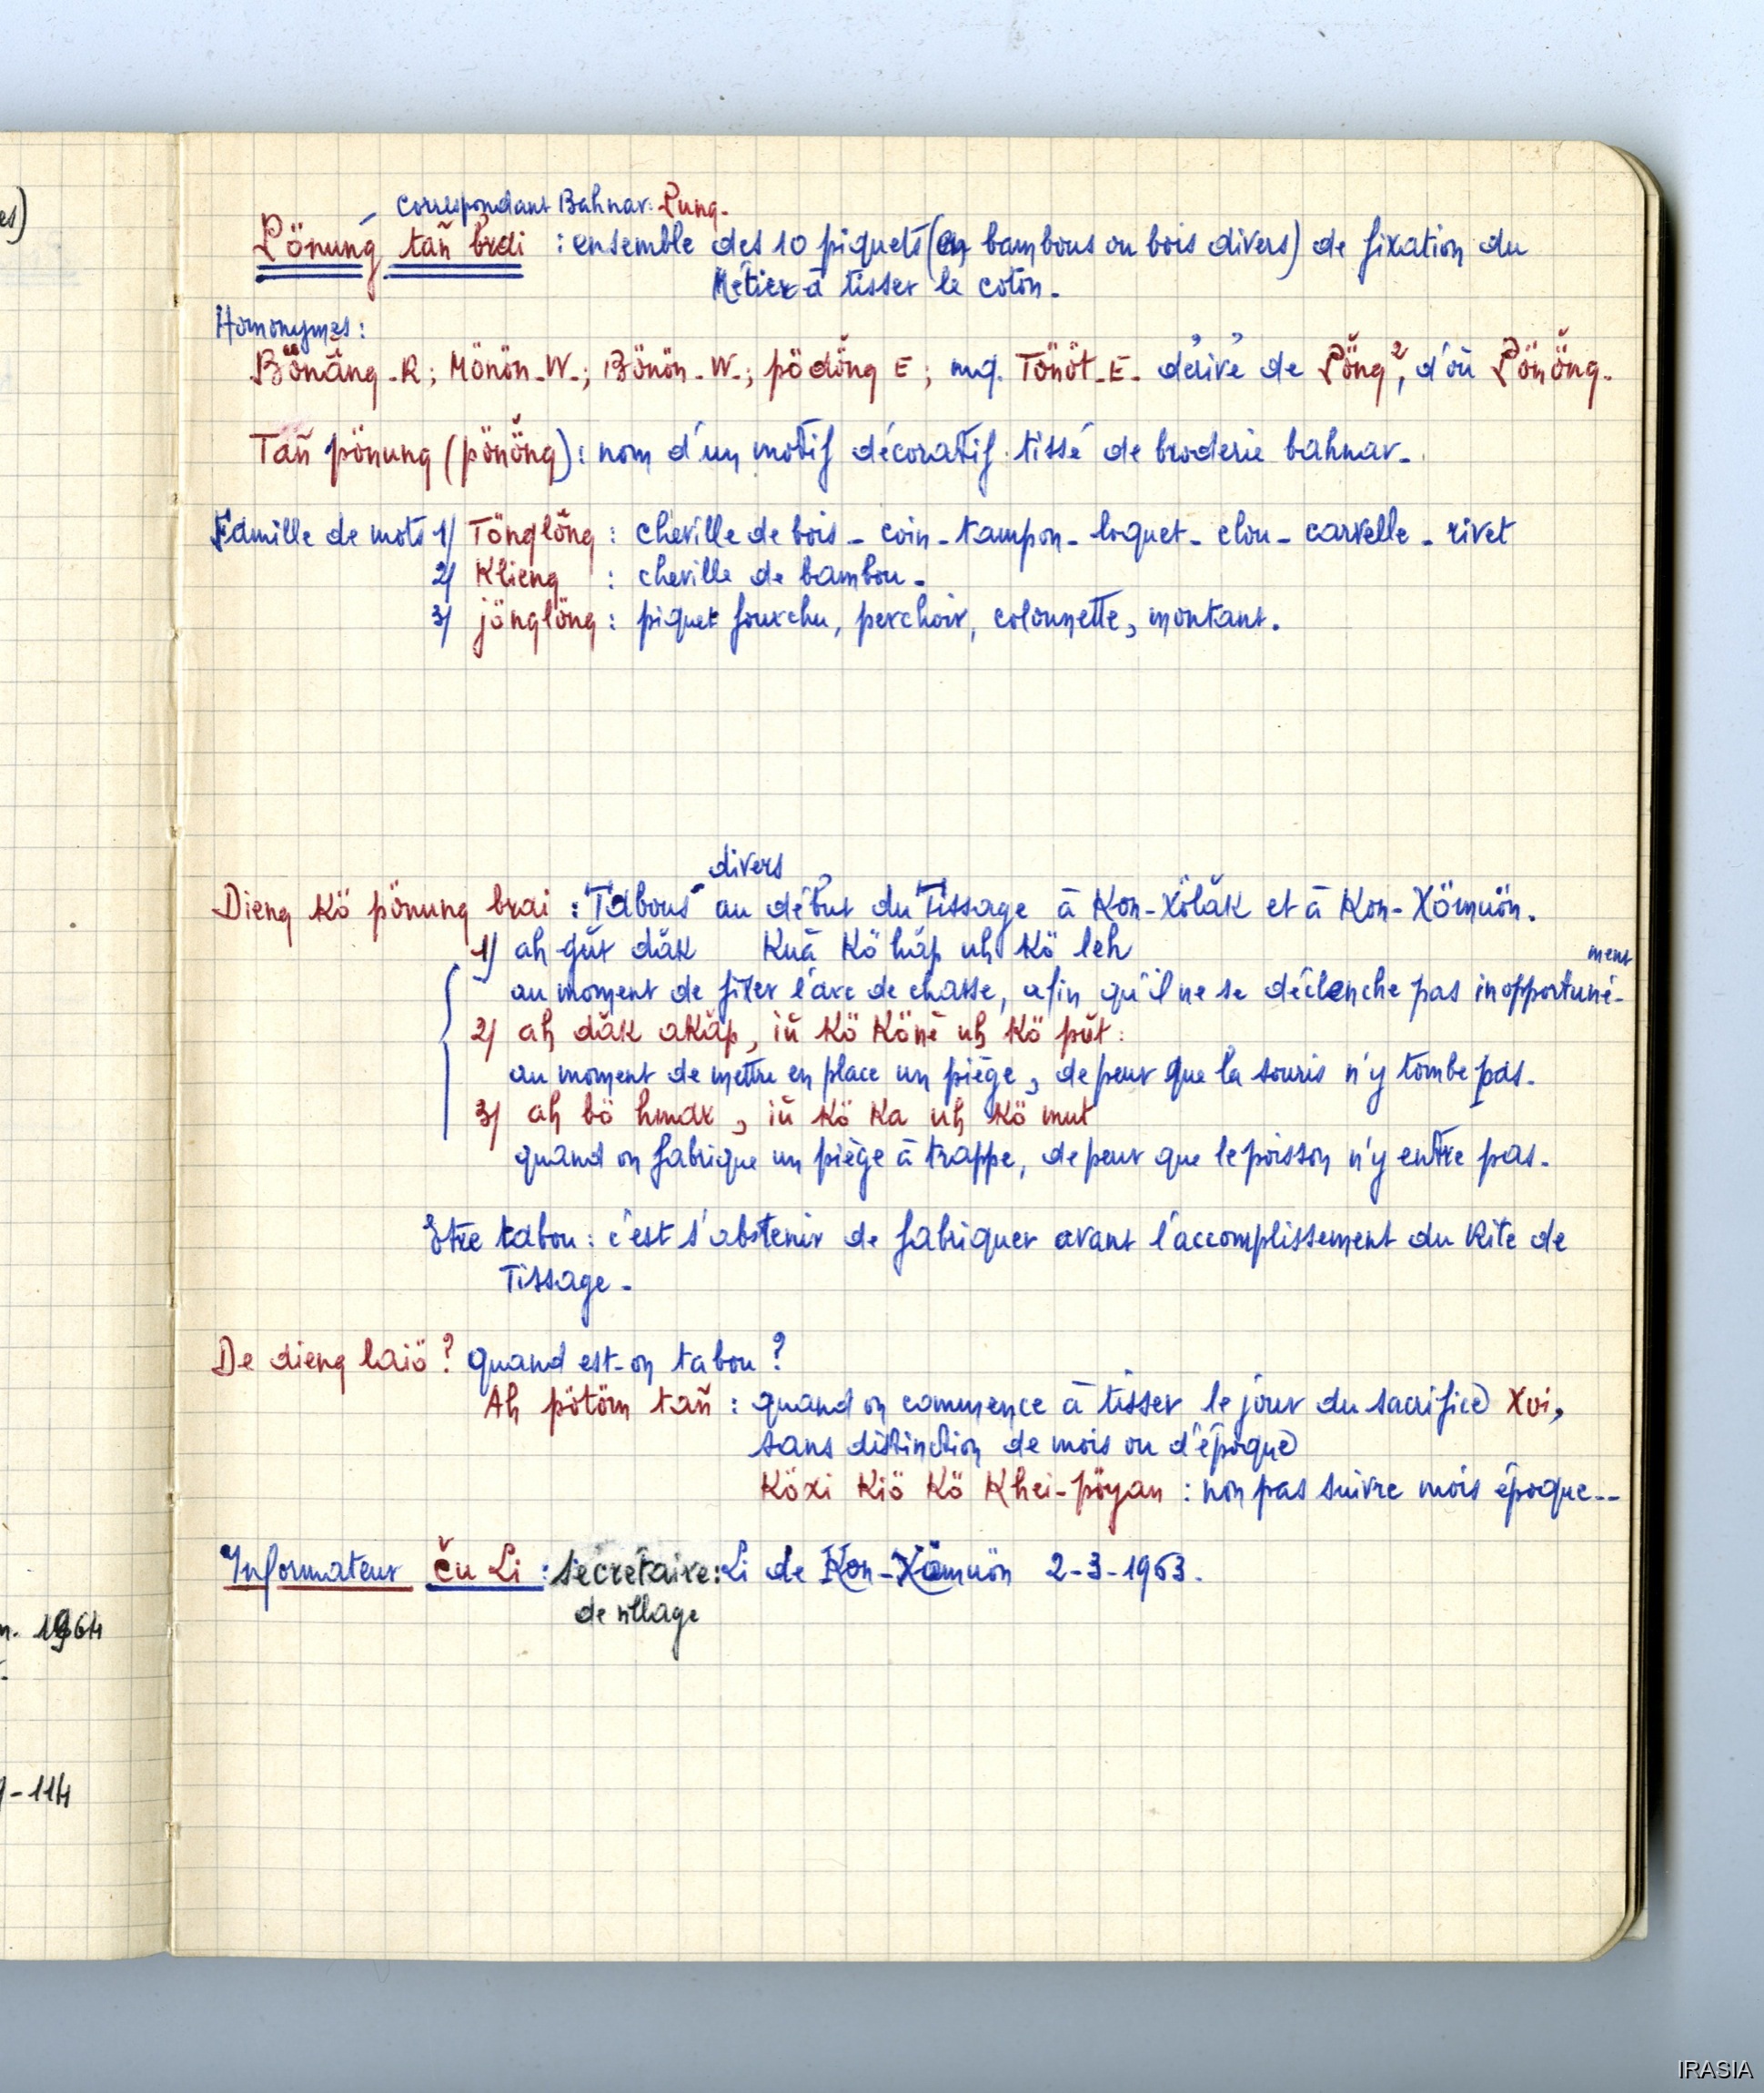 correspondant Bahnar: Pung.
Pönung tañ brai : ensemble des 10 piquets (en bambous ou bois divers) de fixation du
Métier à tisser le coton.
Homonymes:
Bönăng - R; Mönön - W.; Bönön - W.; pödŏng E; mq. Tönöt - E - dérivé de Pŏng², d'où Pönŏng.
Tañ pönung (pönŏng) : nom d'un motif décoratif tissé de broderie bahnar -
Famille de mots 1/ Tönglŏng : cheville de bois - coin - tampon - loquet - clou - carvelle - rivet
2/ Klieng : cheville de bambou -
3/ jönglöng : piquet fourchu, perchoir, colonnette, montant.
divers
Dieng kö pönung brai : Tabous au début du Tissage à Kon-Xölăk et à Kon-Xömuön.
1/ ah gŭt dăk Kuă Kö hăp uh kö leh
ment
au moment de fixer l'arc de chasse, afin qu'il ne se déclenche pas inopportuné-
2/ ah dăk akăp, iŭ kö Köne uh kö pŭt :
au moment de mettre en place un piège, de peur que la souris n'y tombe pas.
3/ ah bö hmar, iŭ kö ka uh kö mut
quand on fabrique un piège à trappe, de peur que le poisson n'y entre pas.
Etre tabou : c'est s'abstenir de fabriquer avant l'accomplissement du Rite de
Tissage -
De dieng laiö ? quand est-on tabou ?
Ah pötöm tañ : quand on commence à tisser le jour du sacrifice Xoi,
sans distinction de mois ou d'époque
Köxi Kiö Kö Khei-pöyan : non pas suivre mois époque --
Informateur Ču Li : secrétaire: Li de Kon-Xömuön 2-3-1963.
de village
es)
1964
- 114
IRASIA